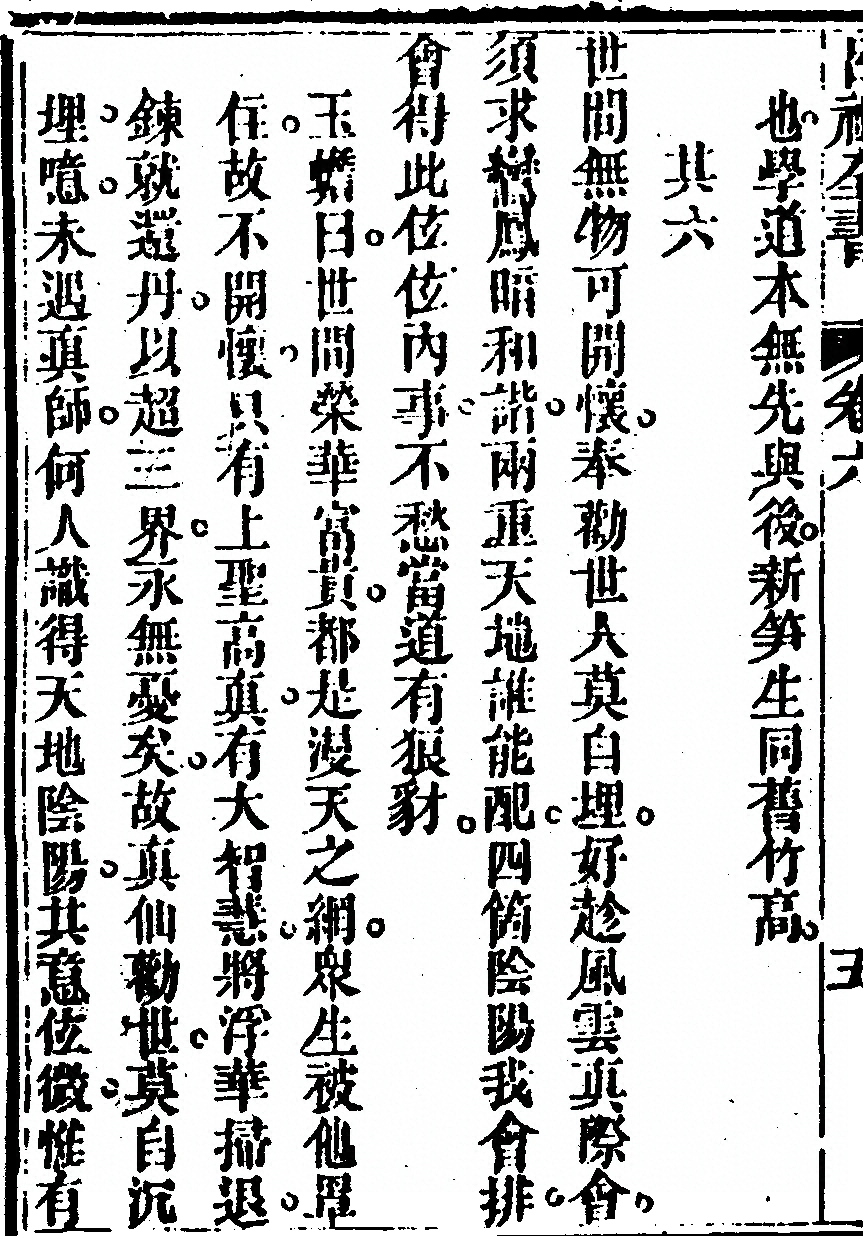 祖全書　卷六　五
也。學道本無先與後。新笋生同舊竹高。
其六
世間無物可開懷。奉勸世人莫自埋。好趁風雲真際會。
須求鸞鳳暗和諧。兩重天地誰能配。四箇陰陽我會排。
會得此伭伭內事。不愁當道有狼豺。
玉蟾曰。世間榮華富貴。都是漫天之網。眾生被他罩
住。故不開懷。只有上聖高真。有大智慧。將浮華掃退。
鍊就還丹。以超三界。永無憂矣。故真仙勸世。莫自沉
埋。噫。未遇真師。何人識得天地陰陽。其意伭微。惟有